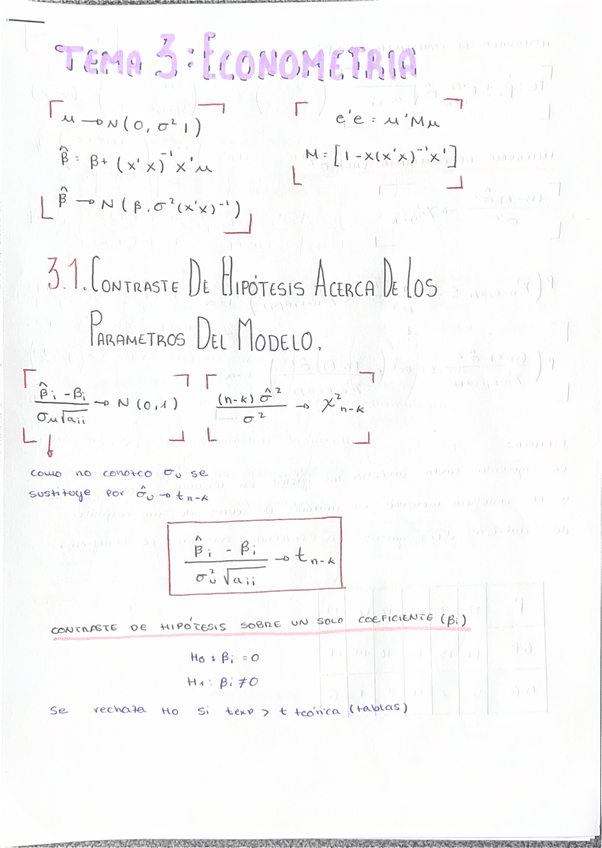 TEMA 3: ECONOMETRIA
μ → N(0, σ² I)
β̂ = β + (x'x)⁻¹ x'μ
β̂ → N(β, σ²(x'x)⁻¹)
e'e = μ'Mμ
M = [I - x(x'x)⁻¹x']
3.1. CONTRASTE DE HIPÓTESIS ACERCA DE LOS
PARAMETROS DEL MODELO.
(β̂i - βi) / (σμ√aii) → N(0,1)
((n-k) σ̂²) / σ² → χ²n-k
como no conozco σu se
sustituye por σ̂u → tn-k
(β̂i - βi) / (σ²u √aii) → tn-k
CONTRASTE DE HIPÓTESIS SOBRE UN SOLO COEFICIENTE (βi)
H0: βi = 0
H1: βi ≠ 0
Se rechaza H0 si texp > t teórica (tablas)